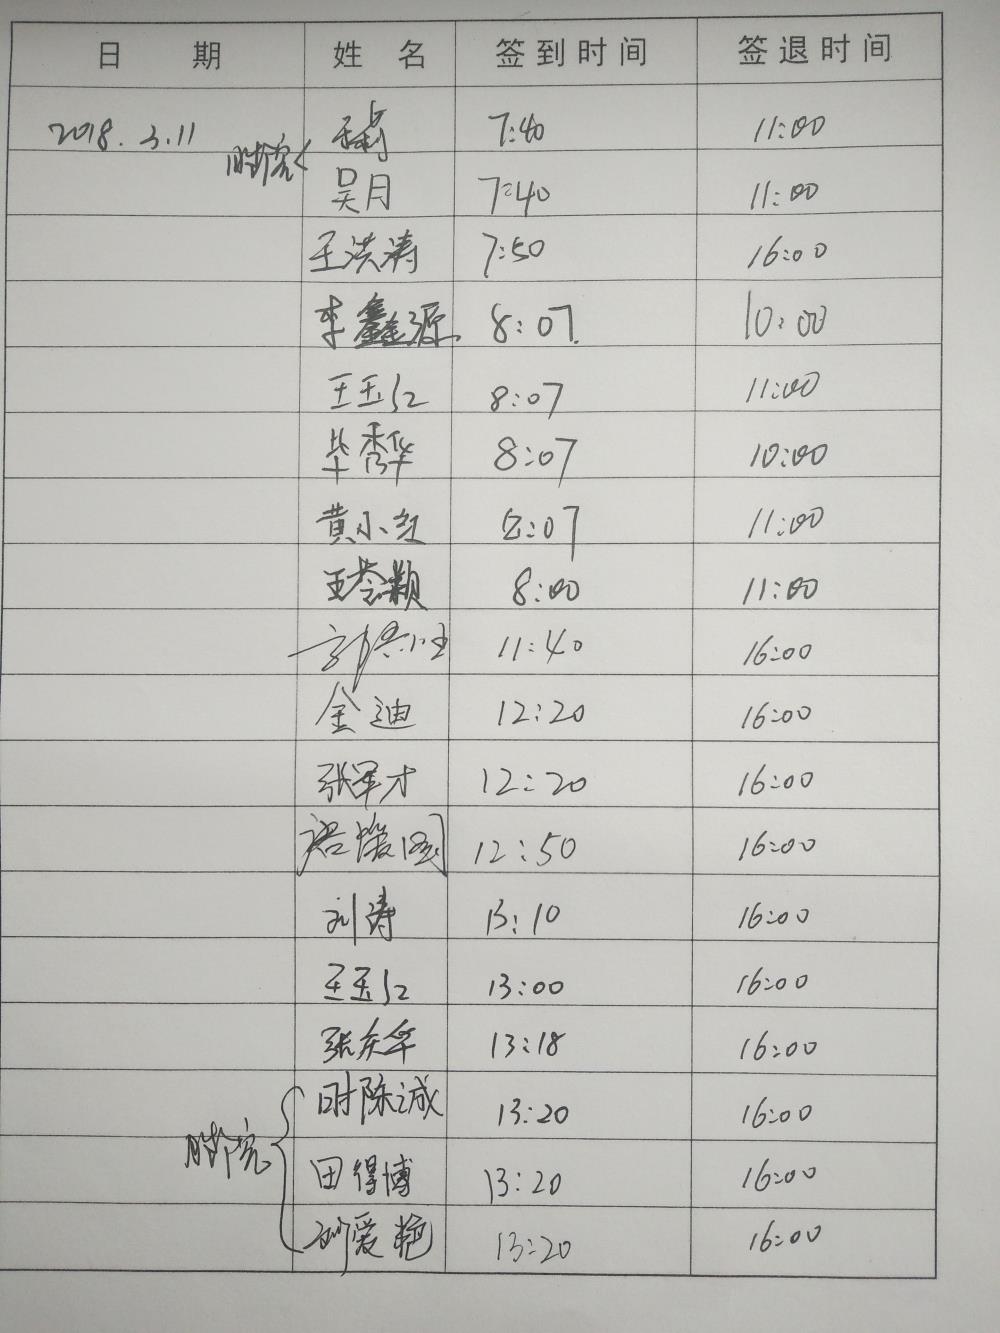 日 期 姓 名 签到时间 签退时间
2018.3.11 7:40 11:00
吴月 7:40 11:00
王洪涛 7:50 16:00
李鑫源 8:07 10:00
王玉红 8:07 11:00
毕秀华 8:07 10:00
黄小红 8:07 11:00
王苓颖 8:00 11:00
11:40 16:00
金迪 12:20 16:00
张军才 12:20 16:00
12:50 16:00
刘涛 13:10 16:00
王玉红 13:00 16:00
张庆华 13:18 16:00
时际诚 13:20 16:00
田得博 13:20 16:00
爱艳 13:20 16:00